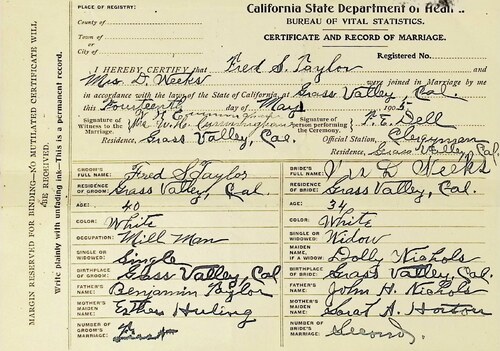 PLACE OF REGISTRY:
County of
Town of
or
City of
California State Department of Heal
BUREAU OF VITAL STATISTICS.
CERTIFICATE AND RECORD OF MARRIAGE.
Registered No.
I HEREBY CERTIFY that Fred S. Taylor and
Mrs D. Weeks were joined in Marriage by me
in accordance with the laws of the State of California at Grass Valley, Cal.
this Fourteenth day of May 1905
Signature of Witness to the Marriage Mrs W. H. Cunningham
Signature of person performing the Ceremony. Dell
Residence, Grass Valley, Cal.
Official Station, Clergyman
Residence, Grass Valley, Cal.
GROOM'S FULL NAME: Fred S Taylor
BRIDE'S FULL NAME: Mrs D Weeks
RESIDENCE OF GROOM: Grass Valley, Cal.
RESIDENCE OF BRIDE: Grass Valley, Cal.
AGE: 40
AGE: 34
COLOR: White
COLOR: White
OCCUPATION: Mill Man
SINGLE OR WIDOWED: Widow
SINGLE OR WIDOWED: Single
MAIDEN NAME, IF A WIDOW: Dolly Nichols
BIRTHPLACE OF GROOM: Grass Valley, Cal
BIRTHPLACE OF BRIDE: Grass Valley, Cal.
FATHER'S NAME: Benjamin Taylor
FATHER'S NAME: John H. Nichols
MOTHER'S MAIDEN NAME: Esther Huling
MOTHER'S MAIDEN NAME: Sarah A. Horton
NUMBER OF GROOM'S MARRIAGE:
NUMBER OF BRIDE'S MARRIAGE: Second.
MARGIN RESERVED FOR BINDING—NO MUTILATED CERTIFICATE WILL BE RECEIVED.
Write plainly with unfading ink—This is a permanent record.